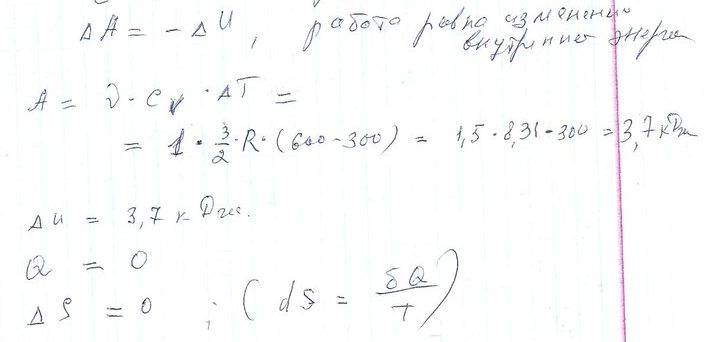 ΔA = - ΔU, работа равна изменению
внутренней энергии
A = ν · Cv · ΔT =
= 1 · 3/2 · R · (600 - 300) = 1,5 · 8,31 · 300 = 3,7 кДж
Δu = 3,7 кДж.
Q = 0
ΔS = 0 ; (dS = δQ/T)